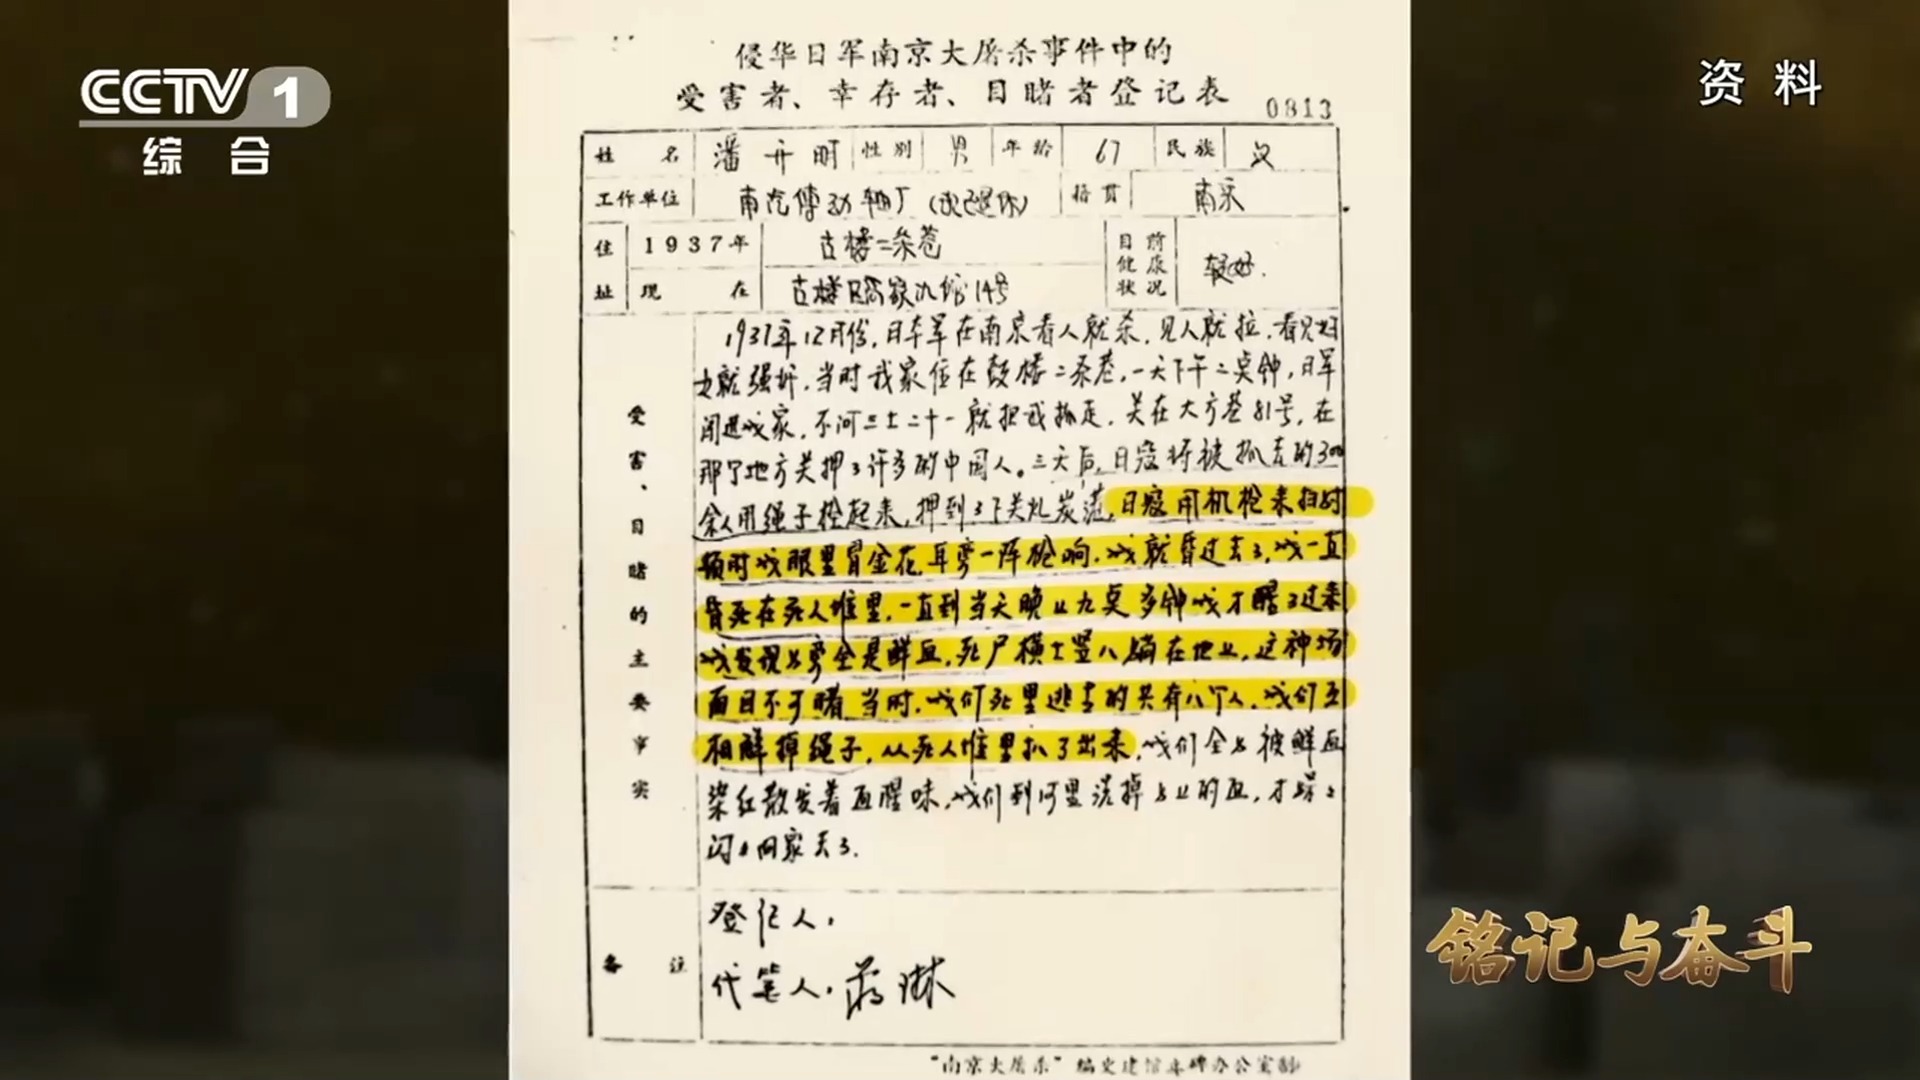 CCTV 1
综 合
资 料
侵华日军南京大屠杀事件中的
受害者、幸存者、目睹者登记表
0813
姓 名 潘开明 性别 男 年龄 67 民族 汉
工作单位 南汽传动轴厂(现已退休) 籍贯 南京
住址 1937年 古楼二条巷 目前健康状况 较好.
现 在 古楼区 14号
受害、目睹的主要事实
1937年12月份,日本军在南京看人就杀,见人就拉,看见妇
女就强奸,当时我家住在鼓楼二条巷,一天下午二点钟,日军
闯进我家,不问三七二十一就把我抓走,关在大方巷81号,在
那个地方关押了许多的中国人。三天后,日寇将被抓去的300
余人用绳子拴起来,押到了下关煤炭港,日寇用机枪来扫射
顿时我眼里冒金花,耳旁一阵枪响,我就昏过去了,我一直
昏死在死人堆里,一直到当天晚上九点多钟我才醒了过来
我发现身旁全是鲜血,死尸横七竖八躺在地上,这种场
面目不可睹 当时,我们死里逃生的共有八个人,我们互
相解掉绳子,从死人堆里扒了出来,我们全身被鲜血
染红散发着血腥味,我们到河里洗掉身上的血,才躲躲
闪闪回家去了.
备 注
登记人:
代笔人:蒋琳
"南京大屠杀"编史建馆立碑办公室制
铭记与奋斗